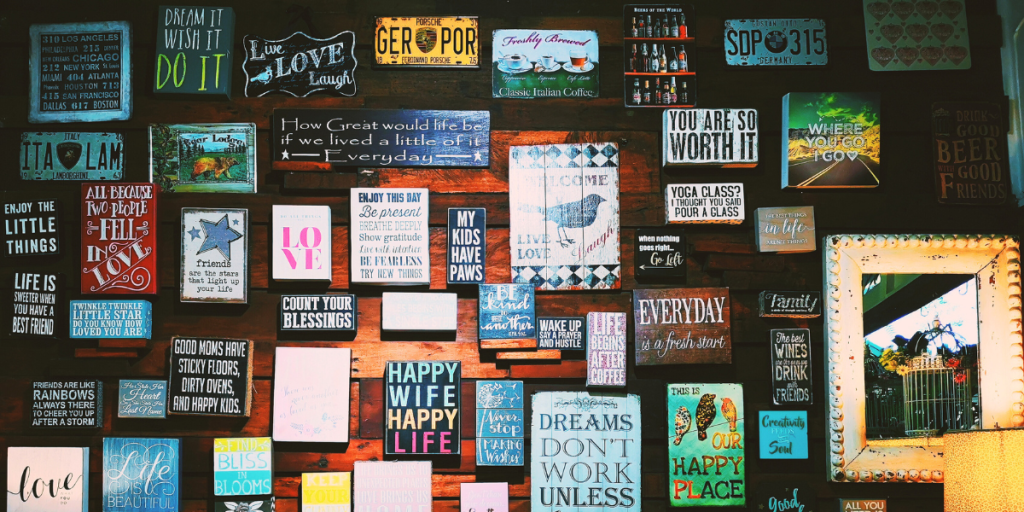 310 LOS ANGELES
PHILADELPHIA 215 DENVER
312 CHICAGO
212 NEW YORK
MIAMI 404 ATLANTA
HOUSTON 713
415 SAN FRANCISCO
DALLAS 617 BOSTON
DREAM IT
WISH IT
DO IT
Live
LOVE
Laugh
PORSCHE
GER POR
FERDINAND PORSCHE
Freshly Brewed
Classic Italian Coffee
BEERS OF THE WORLD
SDP 315
GERMANY
ITALY
ITA LAM
LAMBORGHINI
How Great would life be
if we lived a little of it
Everyday
YOU ARE SO
WORTH IT
WHERE YOU
GO I GO
DRINK
GOOD
BEER
GOOD
FRIENDS
ENJOY THE
LITTLE
THINGS
ALL BECAUSE
TWO PEOPLE
FELL
IN
LOVE
friends
are the stars
that light up
your life
LO
VE
ENJOY THIS DAY
Be present
BREATHE DEEPLY
Show gratitude
BE FEARLESS
TRY NEW THINGS
MY
KIDS
HAVE
PAWS
WELCOME
LIVE
LOVE
laugh
YOGA CLASS?
I THOUGHT YOU SAID
POUR A CLASS
when nothing
goes right..
Go Left
in life
LIFE IS
SWEETER WHEN
YOU HAVE A
BEST FRIEND
TWINKLE TWINKLE
LITTLE STAR
DO YOU KNOW HOW
LOVED YOU ARE
COUNT YOUR
BLESSINGS
BE
kind
to one
another
WAKE UP
SAY A PRAYER
AND HUSTLE
LIFE
BEGINS
AFTER
COFFEE
EVERYDAY
is a fresh start
Family
The best
WINES
are the ones we
DRINK
with
FRIENDS
GOOD MOMS HAVE
STICKY FLOORS,
DIRTY OVENS,
AND HAPPY KIDS.
FRIENDS ARE LIKE
RAINBOWS
ALWAYS THERE
TO CHEER YOU UP
AFTER A STORM
Heart
Last Name
HAPPY
WIFE
HAPPY
LIFE
Never
stop
MAKING
Wishes
DREAMS
DON'T
WORK
UNLESS
THIS IS
OUR
HAPPY
PLACE
Creativity
Soul
love
LIFE
IS
BEAUTIFUL
FINDS
BLISS
IN
BLOOMS
KEEP
good
ALL YOU